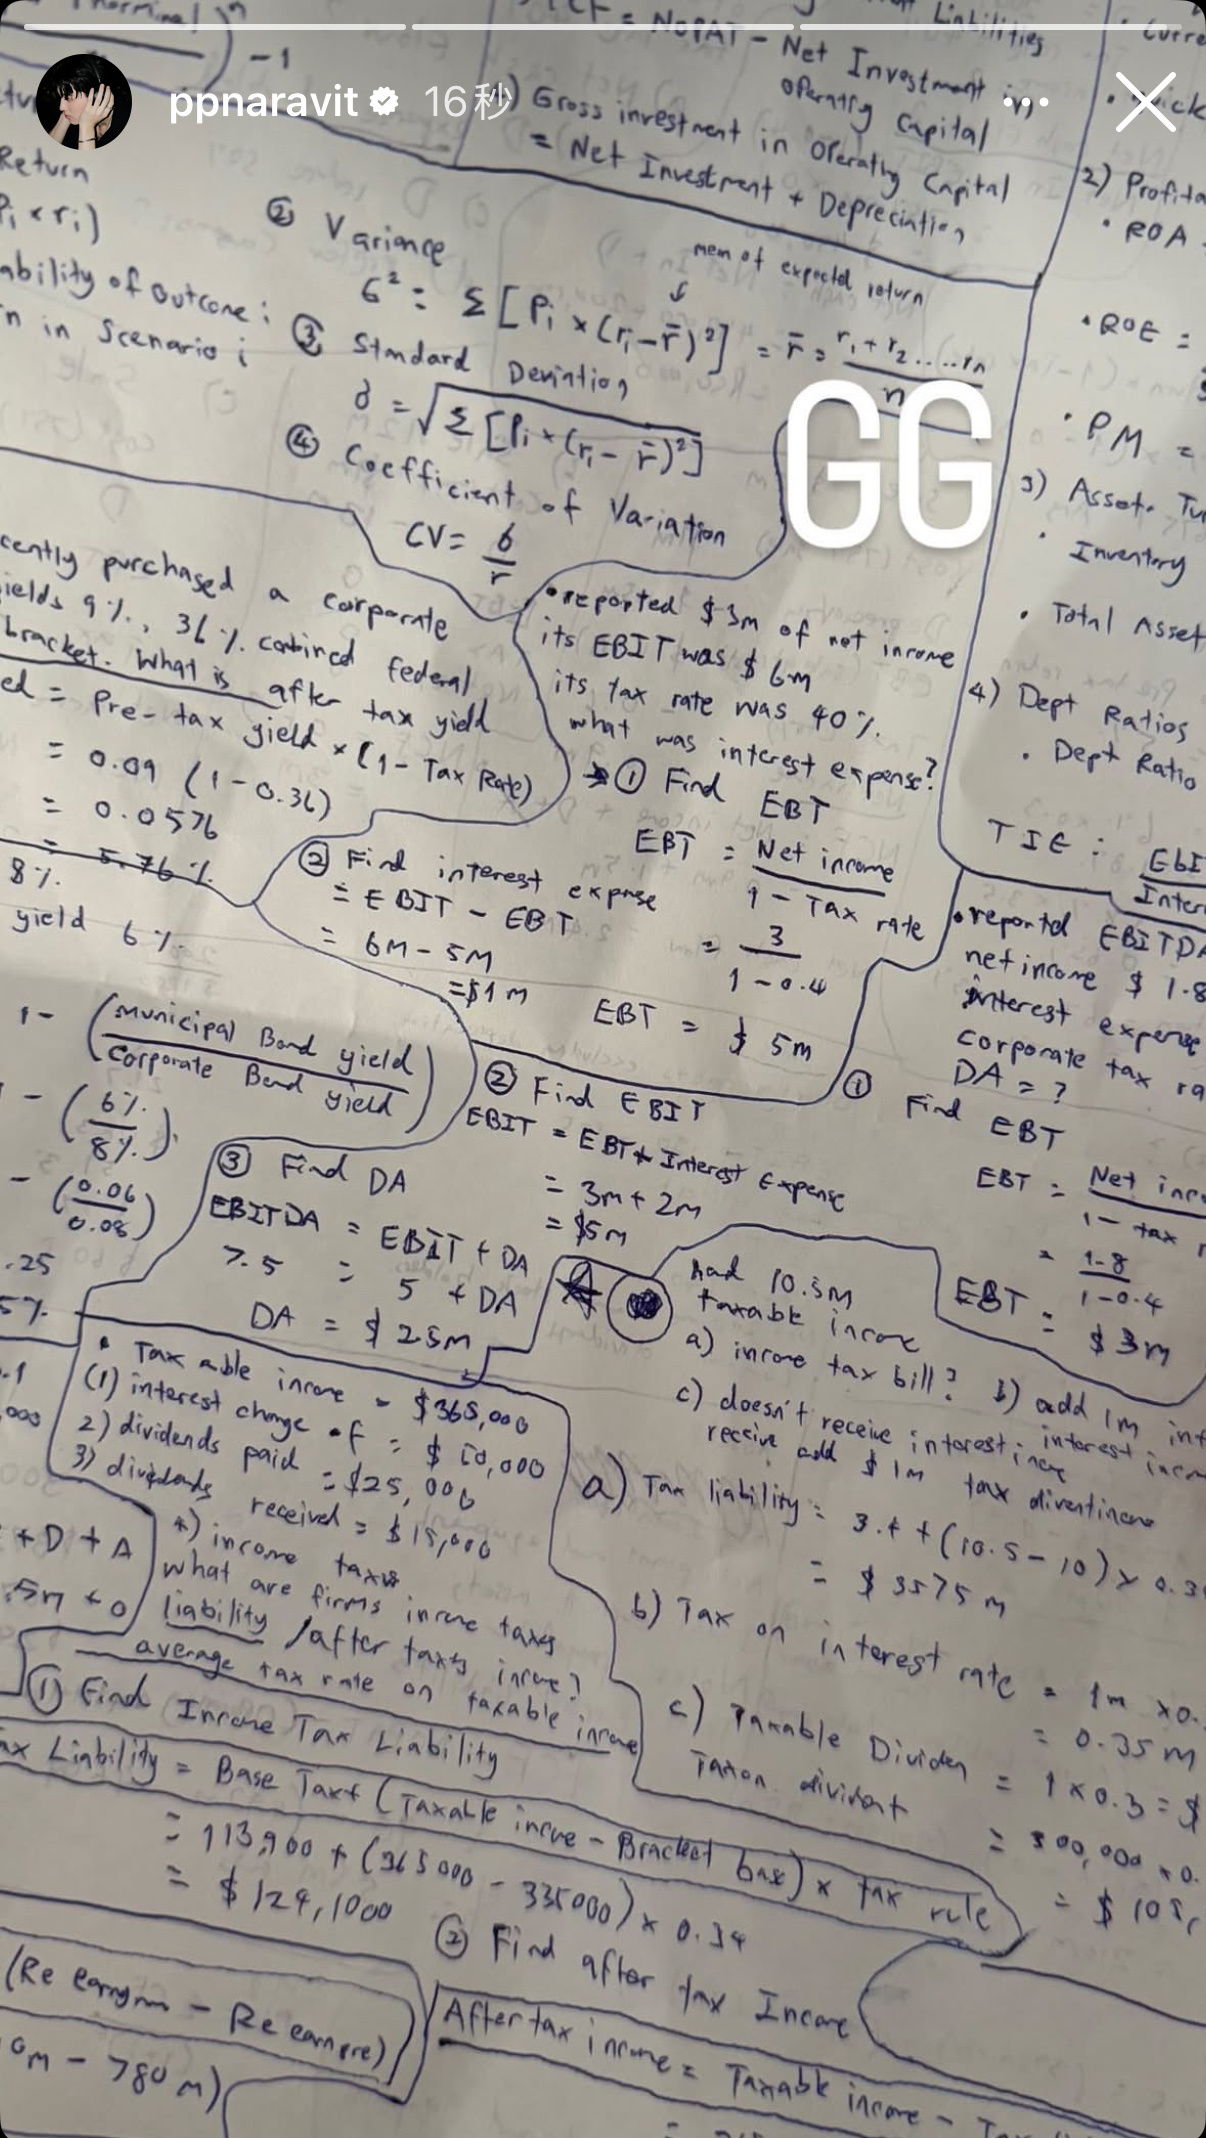 ppnaravit 16秒
(nominal)ⁿ
- 1
= NOPAT - Net Investment in
operating Capital
Liabilities
Gross investment in operating Capital
= Net Investment + Depreciation
2) Profita
• ROA
• ROE =
• PM =
3) Asset. Tu
• Inventory
• Total Asset
4) Dept Ratios
• Dept Ratio
TIE : EbI
Inter
Return
Pi × ri)
ability of outcome :
n in Scenario i
② Variance
mean of expected return
↓
6² = Σ [ Pi × (ri - r̄)²] = r̄ = r₁ + r₂ .....rn
n
③ Standard Deviation
∂ = √Σ [Pi × (ri - r̄)²]
④ Coefficient of Variation
CV = 6
r
GG
cently purchased a corporate
ields 9%, 36% combined federal
bracket. What is after tax yield
ed = Pre-tax yield × (1 - Tax Rate)
= 0.09 (1 - 0.36)
= 0.0576
= 5.76%
8%.
yield 6%.
1 - (Municipal Bond yield
Corporate Bond yield)
- (6%.
8%.)
- (0.06
0.08)
.25
5%.
• reported $3m of net income
its EBIT was $6m
its tax rate was 40%.
what was interest expense?
→ ① Find EBT
EBT = Net income
1 - Tax rate
= 3
1 - 0.4
EBT = $ 5m
② Find interest expnse
= EBIT - EBT
= 6M - 5M
= $1 m
• reportd EBITDA
net income $ 1.8
interest expense
corporate tax ra
DA = ?
① Find EBT
EBT = Net inco
1 - tax r
= 1.8
1 - 0.4
EBT = $ 3m
② Find EBIT
EBIT = EBT + Interest Expense
= 3m + 2m
= $5m
③ Find DA
EBITDA = EBIT + DA
7.5 = 5 + DA
DA = $ 2.5m
• Tax able income = $365,000
(1) interest charge of = $ 50,000
2) dividends paid = $25,000
3) dividends received = $15,000
*) income taxes
what are firms income taxes
liability /after taxes income?
average tax rate on taxable income
+ D + A
.5m + 0
had 10.5M
taxable income
a) income tax bill? b) add 1m int
interest incom
c) doesn't receive interest ince
receive add $1m tax diventincne
a) Tax liability = 3.4 + (10.5 - 10) × 0.3
= $ 3575 m
b) Tax on interest rate = 1m × 0.
= 0.35 m
c) Taxable Dividen = 1 × 0.3 = $
Taxon divident = 300,000 × 0.
= $ 105,
① Find Income Tax Liability
ax Liability = Base Tax + (Taxable incme - Bracket base) × tax rule
= 113,900 + (365000 - 335000) × 0.34
= $ 124,1000
② Find after tax Income
After tax income = Taxable income - Tax
(Re earnynn - Re earnpre)
0m - 780 m)